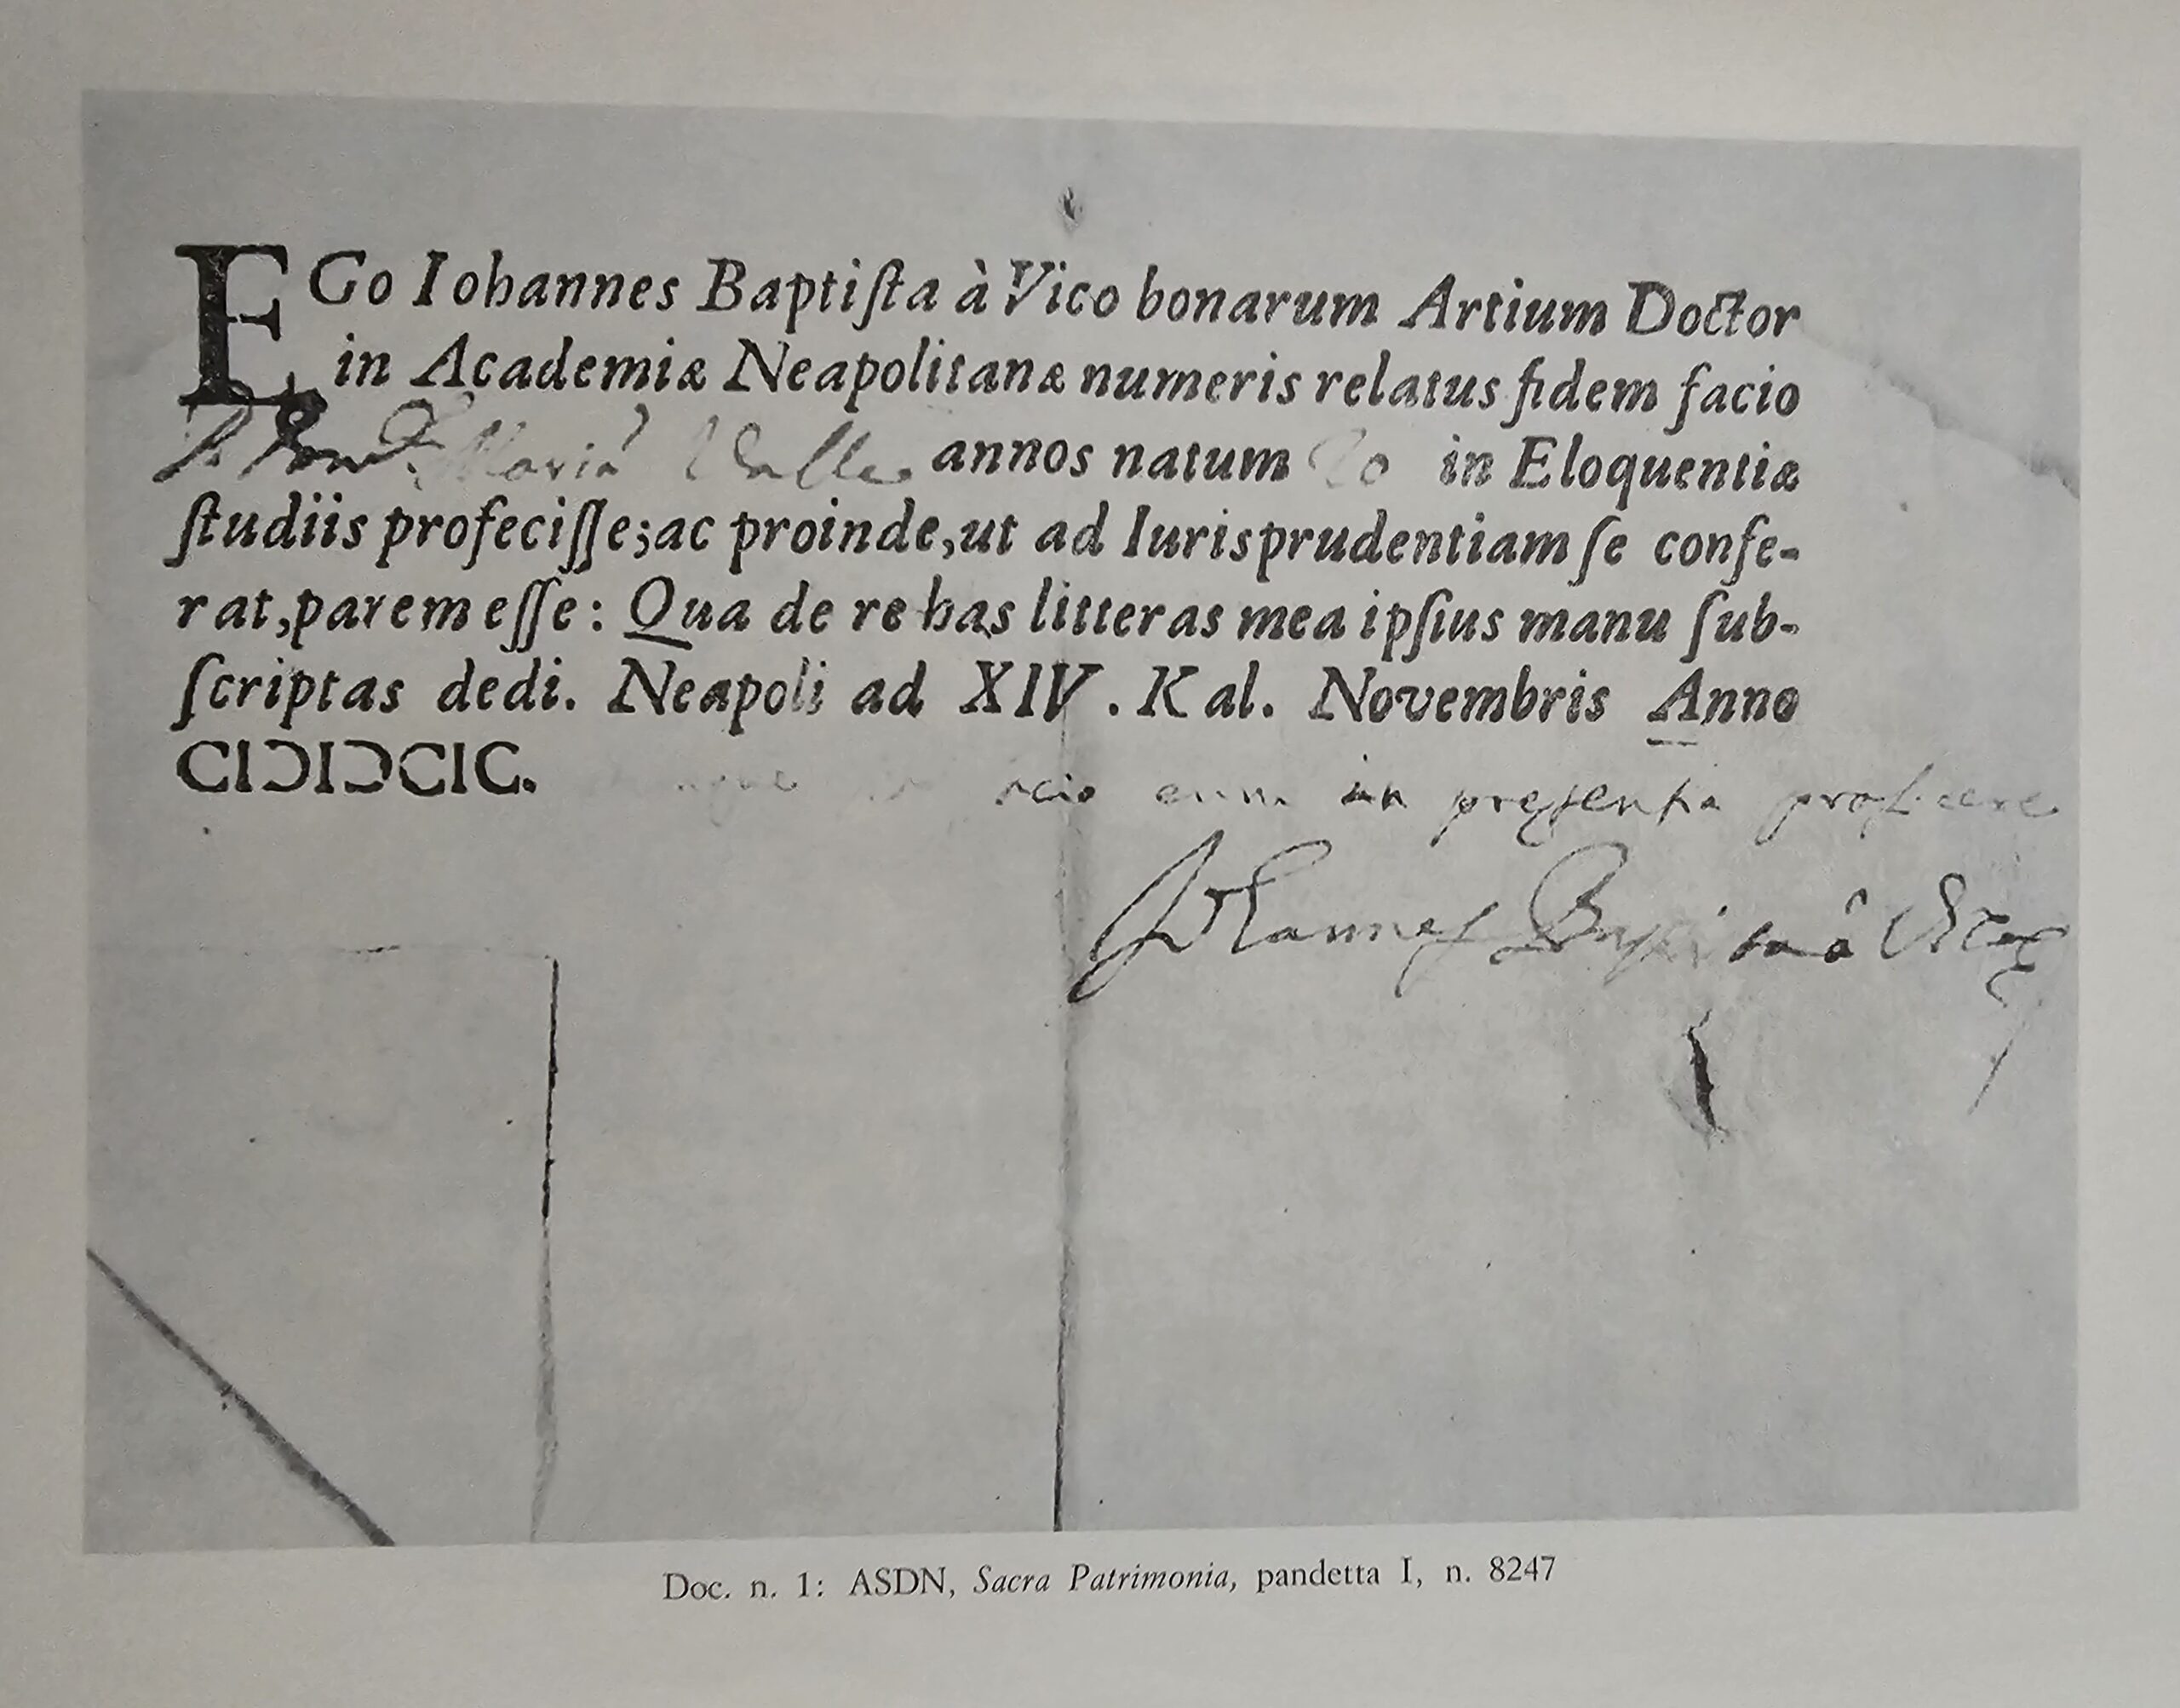 EGo Iohannes Baptiſta à Vico bonarum Artium Doctor
in Academiæ Neapolitanæ numeris relatus fidem facio
Maria Valle annos natum in Eloquentiæ
ſtudiis profeciſſe; ac proinde, ut ad Iurisprudentiam ſe confe-
rat, parem eſſe: Qua de re has litteras mea ipſius manu ſub-
ſcriptas dedi. Neapoli ad XIV. Kal. Novembris Anno
CIƆIƆCIC.
scio eum in preſentia proficere
Iohannes Baptista à Vico
Doc. n. 1: ASDN, Sacra Patrimonia, pandetta I, n. 8247